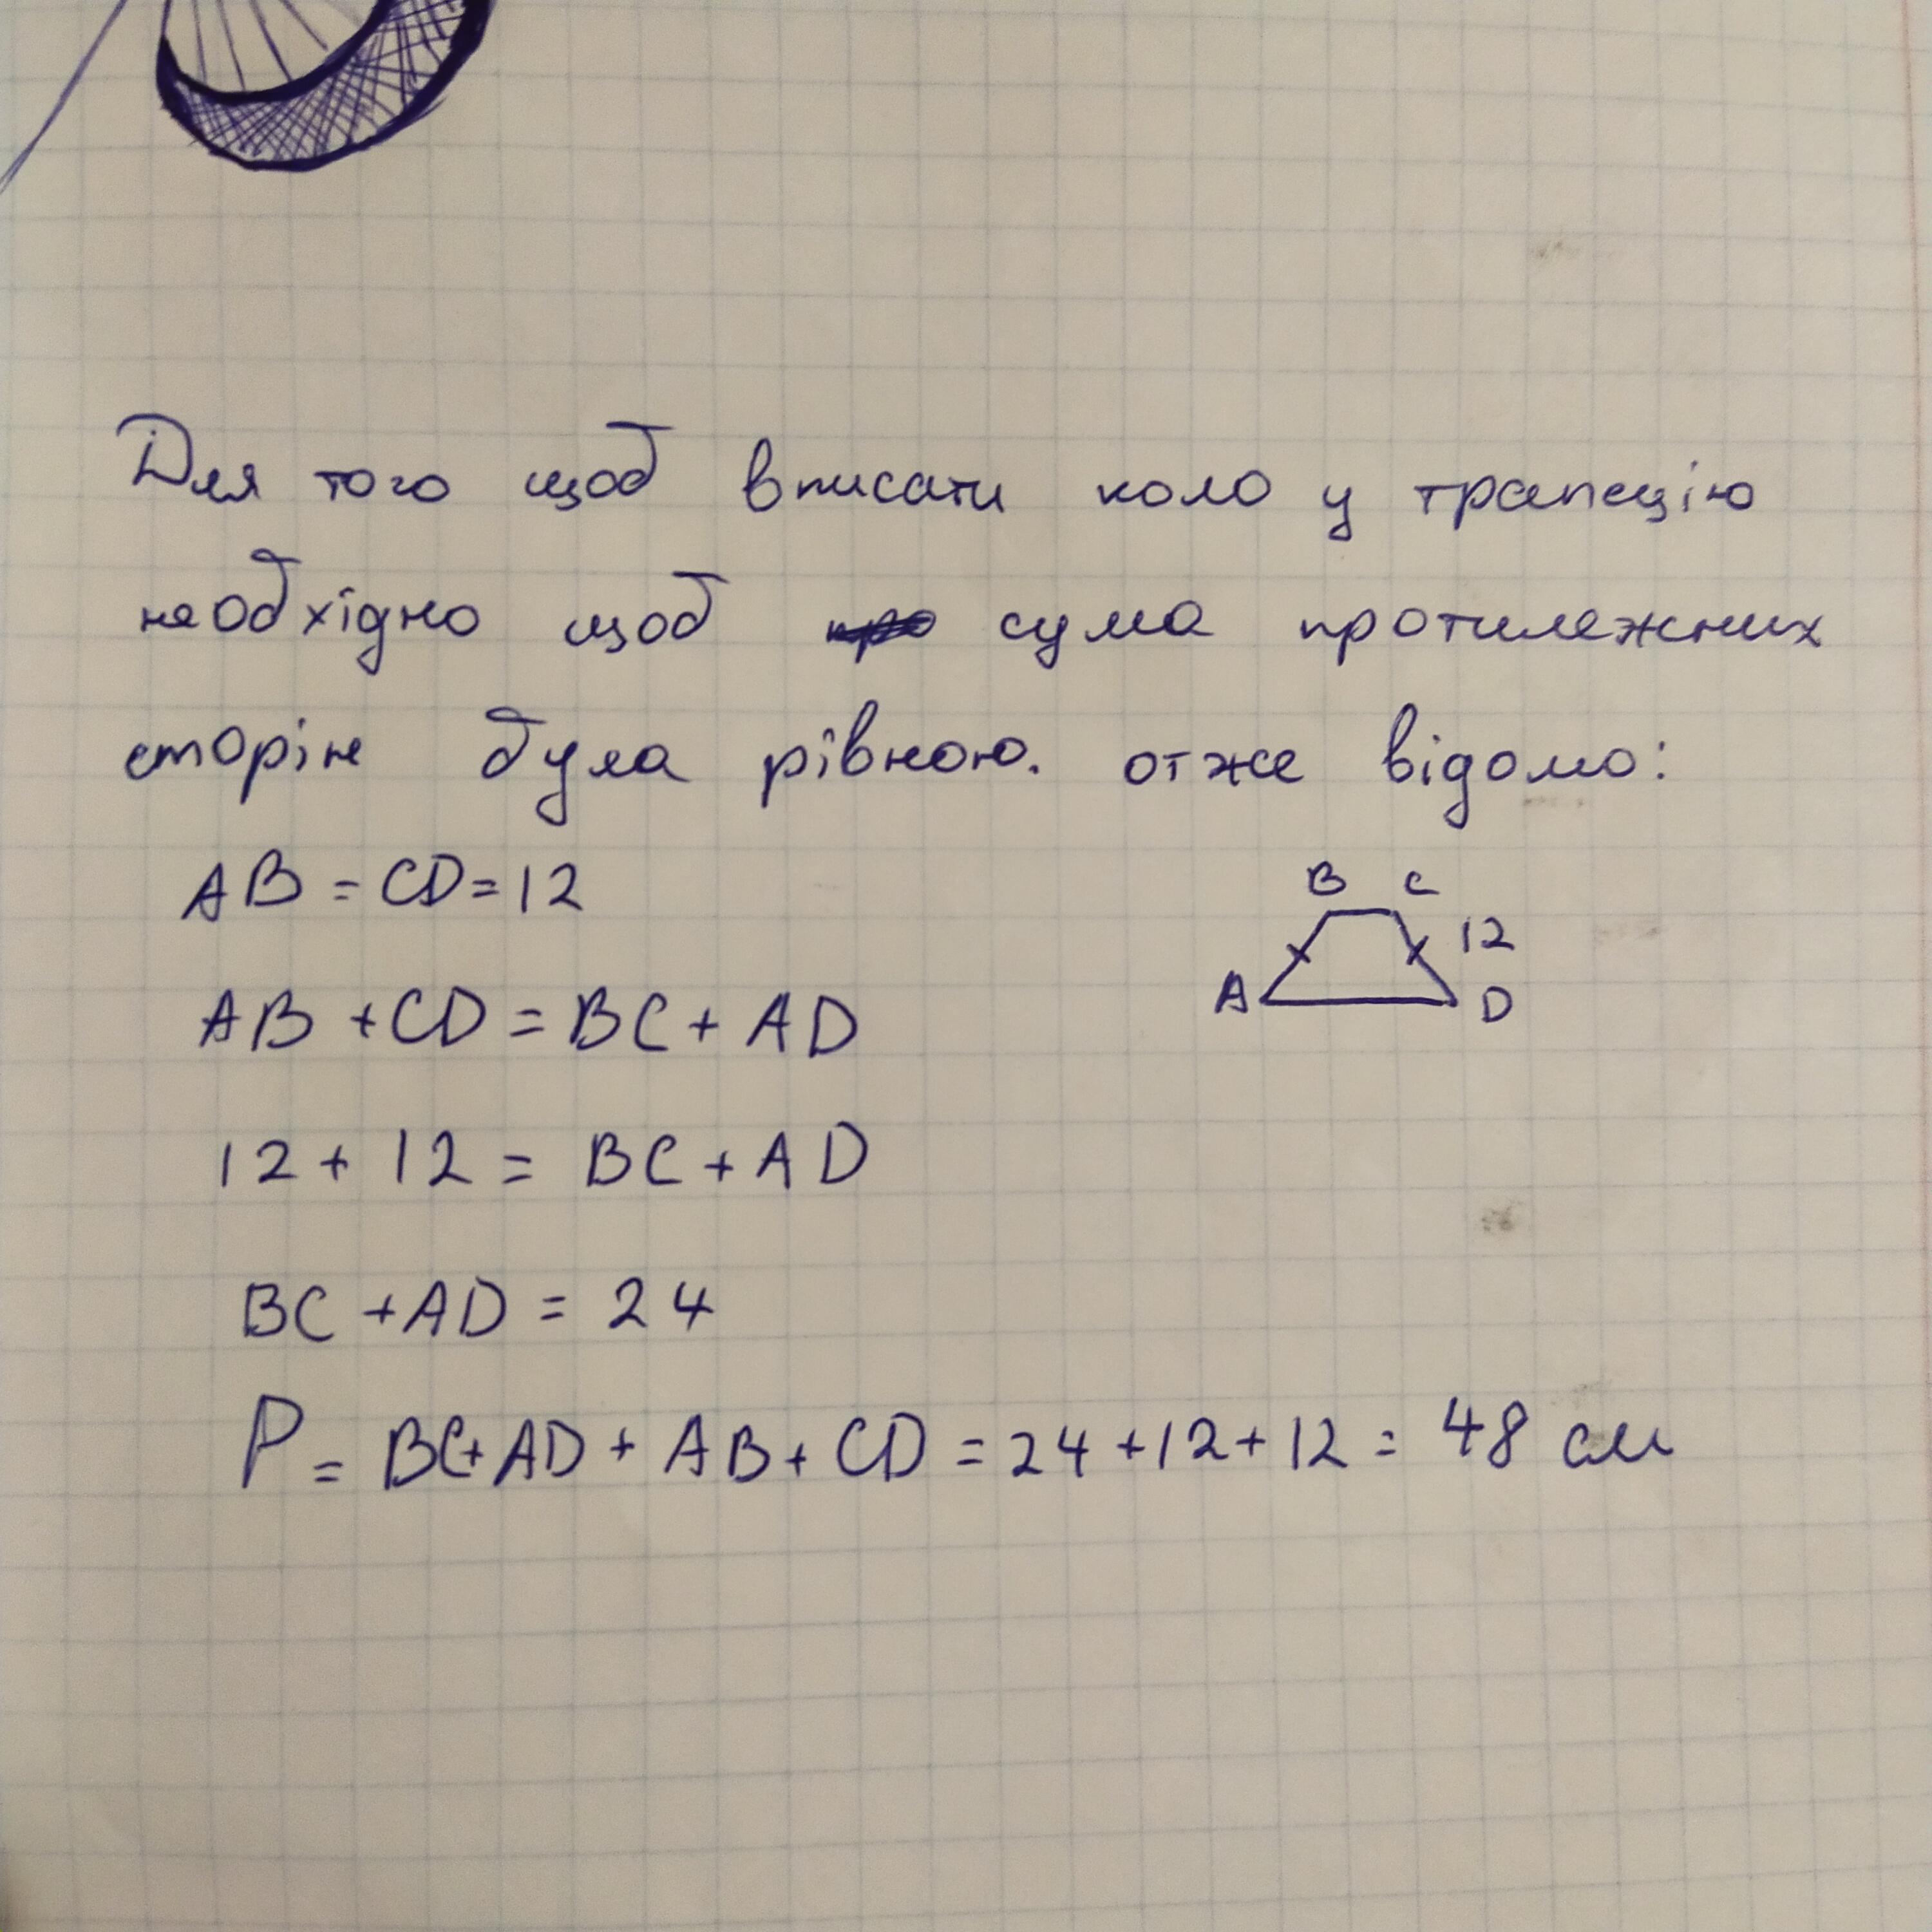 Для того щоб вписати коло у трапецію
необхідно щоб сума протилежних
сторін була рівною. отже відомо:
AB = CD = 12
B C
12
A D
AB + CD = BC + AD
12 + 12 = BC + AD
BC + AD = 24
P = BC + AD + AB + CD = 24 + 12 + 12 = 48 см